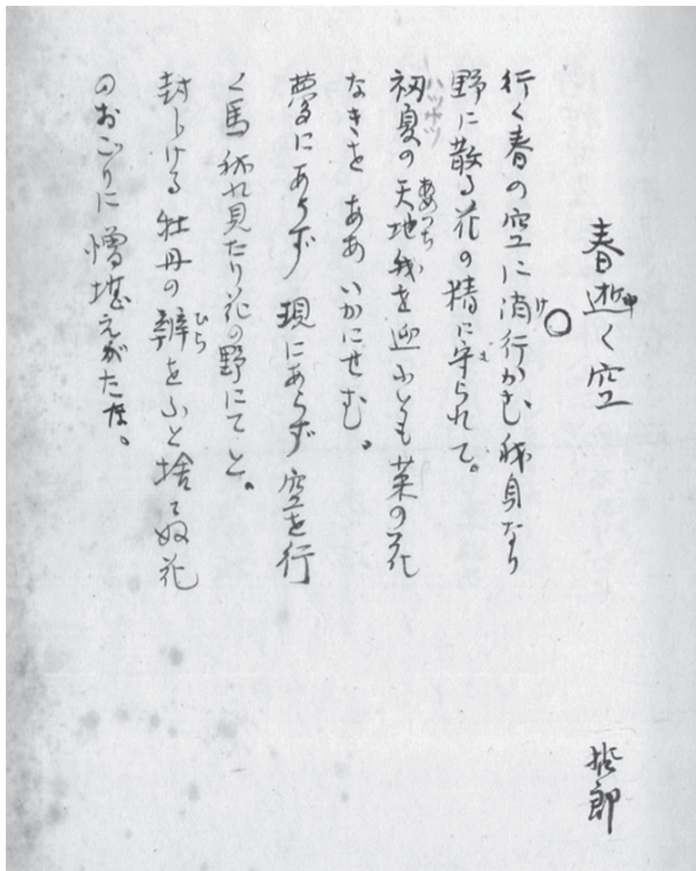 春逝く空
哲郎
行く春の空に消行かむ我身なり
け
野に散る花の精に守られて。
ま
初夏の天地我を迎ふとも菜の花
ハツナツ
あめつち
なきをああいかにせむ。
夢にあらず現にあらず空を行
く馬我れ見たり花の野にてと。
封じける牡丹の瓣をふと捨てぬ花
ひら
のおごりに憎堪えがたな。